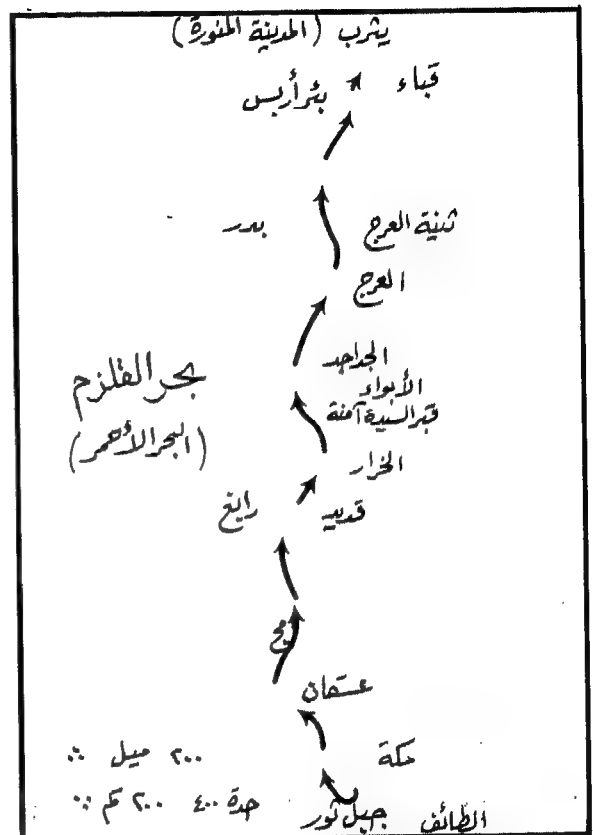 يثرب (المدينة المنورة)
قباء
بئر أريس
ثنية العرج
بدر
العرج
الجداجد
الأبواء
قبر السيدة آمنة
بحر القلزم
(البحر الأحمر)
الخرار
قديد
رابغ
عسفان
مكة
٢٠٠ ميل
جدة ٤٠٠ ٢٠٠ كم
جبل ثور
الطائف